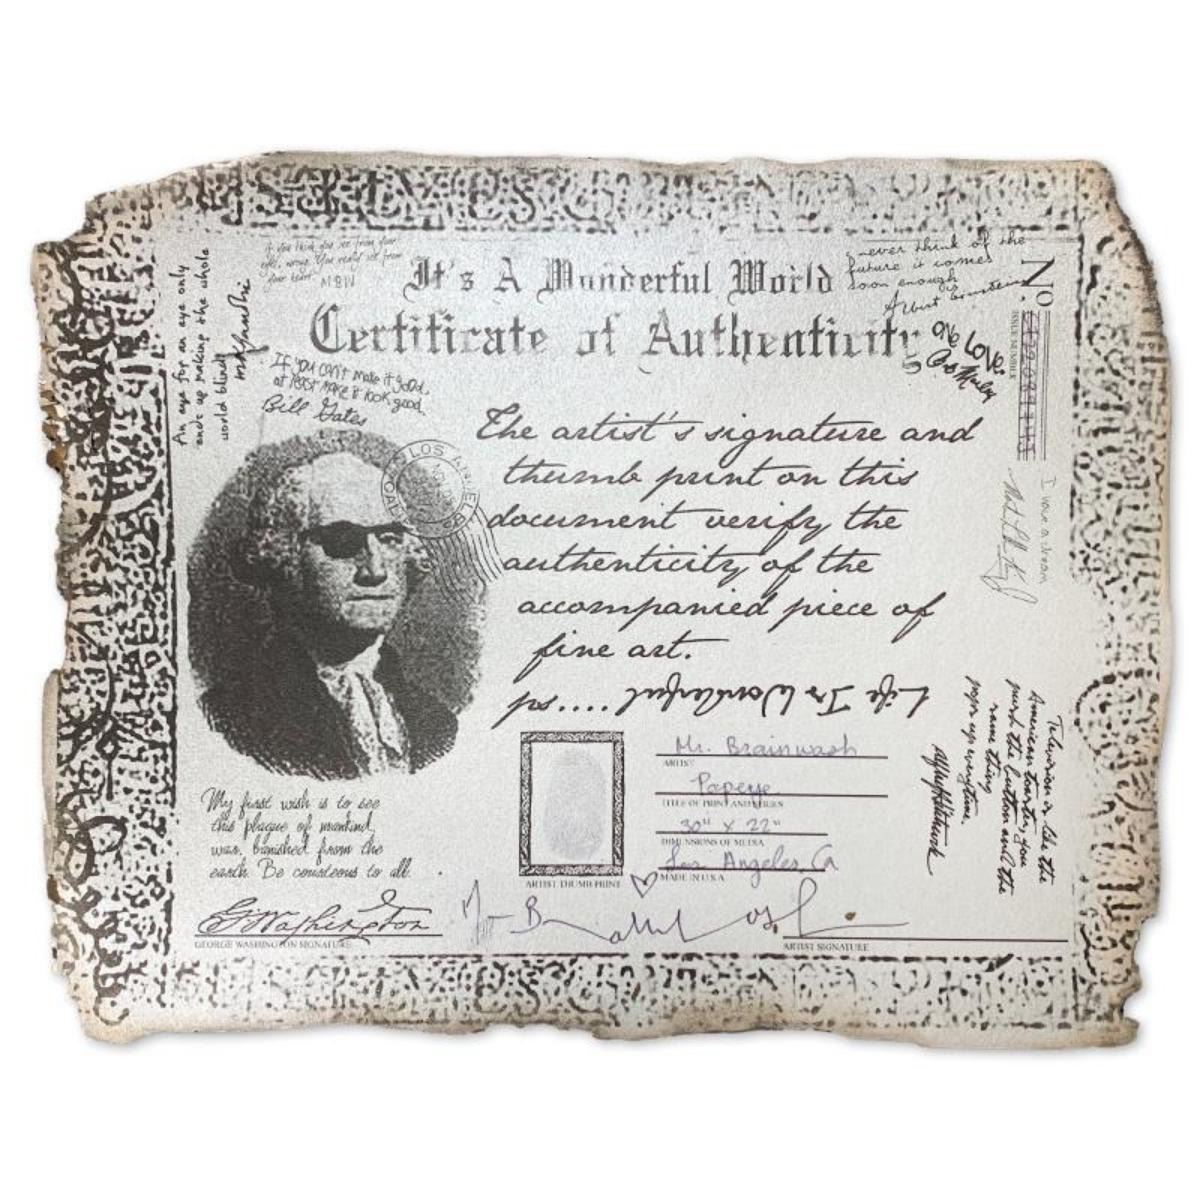 if you think you see from your
eyes, wrong. You really see from
your heart MBW
It's A Wonderful World
Certificate of Authenticity
never think of the
future it comes
soon enough
Albert Einstein
One Love.
Bob Marley
No
ISSUE NUMBER
An eye for an eye only
ends up making the whole
world blind
If you can't make it good,
at least make it look good.
Bill Gates
LOS ANGELES
The artist's signature and
thumb print on this
document verify the
authenticity of the
accompanied piece of
fine art.
ps..... Life Is Wonderful
I have a dream
Television is like the
American toaster, you
push the button and the
same thing
pops up everytime.
Alfred Hitchcock
My first wish is to see
this plague of mankind,
war, banished from the
earth. Be courteous to all.
G Washington
GEORGE WASHINGTON SIGNATURE
ARTIST THUMB PRINT
Mr. Brainwash
ARTIST
Popeye
TITLE OF PRINT AND SERIES
30" x 22"
DIMENSIONS OF MEDIA
Los Angeles, Ca
MADE IN U.S.A
ARTIST SIGNATURE